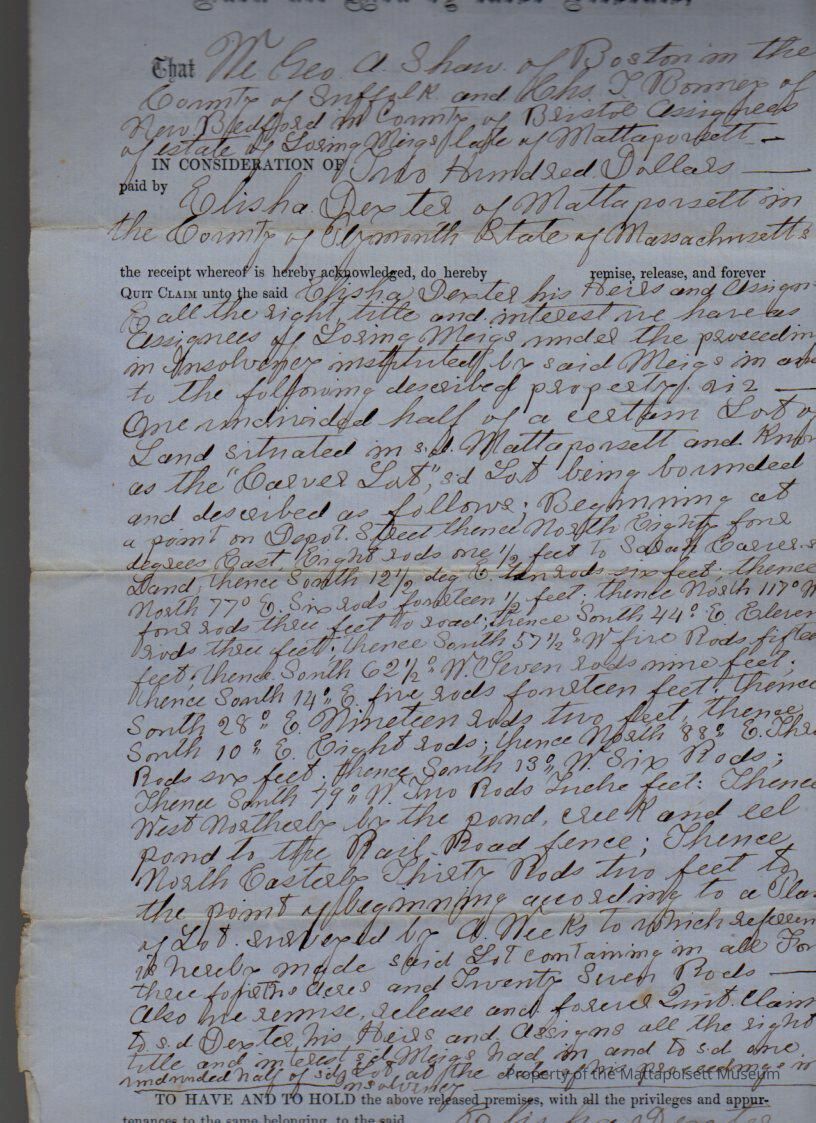 That We Geo. A. Shaw. of Boston in the
County of Suffolk and Chs. T Bonney of
New Bedford in County of Bristol Assignees
of estate of Loring Meigs late of Mattapoisett —
IN CONSIDERATION OF Two Hundred Dollars —
paid by
Elisha Dexter of Mattapoisett in
the County of Plymouth State of Massachusetts
the receipt whereof is hereby acknowledged, do hereby remise, release, and forever
QUIT CLAIM unto the said Elisha Dexter his Heirs and Assign
all the right, title and interest we have as
Assignees of Loring Meigs under the proceedin
in Insolvency instituted by said Meigs in and
to the following described property. viz —
One undivided half of a certain Lot o
Land situated in s.d. Mattapoisett and Know
as the "Carver Lot", s.d Lot being bounded
and described as follows; Beginning at
a point on Depot. Street thence North Eighty four
degrees East, Eight rods one 1/2 feet to Sarah Carver.s
Land, thence South 12 1/2 deg E. ten rods six feet, thence
North 77° E. Six rods fourteen 1/2 feet, thence North 117° W
four rods three feet to road; thence South 44° E. Eleven
rods three feet; thence South 57 1/2° W five Rods fiftee
feet, thence South 62 1/2° W. Seven rods nine feet;
thence South 14° E. five rods fourteen feet; thence
South 28° E. Nineteen rods two feet, thence
South 10° E. Eight rods; thence North 88° E. Thre
Rods six feet; thence South 13° W Six Rods;
Thence South 79° W. Two Rods feet: Thence
West Northerly by the pond, creek and eel
pond to the Rail Road fence; Thence
North Easterly Thirty Rods two feet to
the point of beginning according to a Pla
of Lot. surveyed by A Weeks to which referen
is hereby made said Lot containing in all For
three fourths Acres and Twenty Seven Rods —
Also we remise, release and forever Quit. Claim
to s.d Dexter, his Heirs and Assigns all the right
title and interest s.d Meigs had in and to s.d one
undivided half of s.d Lot, at the date of the proceedings i
insolvency
Property of the Mattapoisett Museum
TO HAVE AND TO HOLD the above released premises, with all the privileges and appur-
tenances to the same belonging, to the said Elisha Dexter